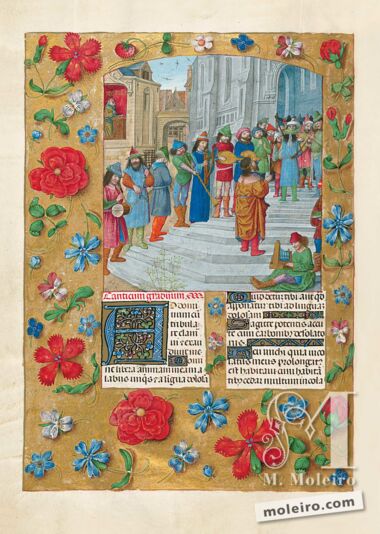 Canticum graduum
D domi
num cu
tribula
rer clam
aui et exau
diuit me
ne libera animam meam a
labijs iniqs et a ligua dolosa
Quid detur tibi aut qd
apponatur tibi ad linguā
dolosam
Sagitte potentis acu
te cum carbonib desolatorijs
Heu michi quia incola
tus meus prolongatꝰ
est habitaui cum habitā
tibꝰ cedar multum incola
M
M. Moleiro
moleiro.com